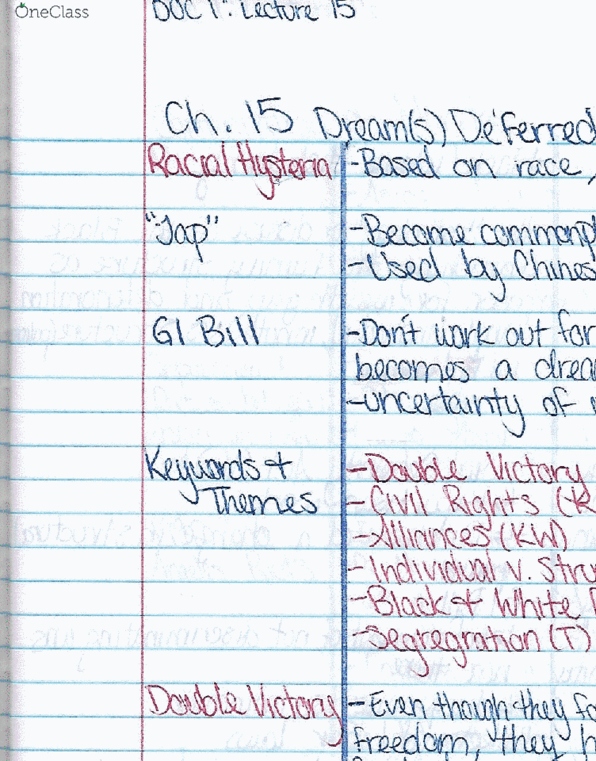 OneClass
DOC 1: Lecture 15
Ch. 15 Dream(s) Deferred
Racial Hysteria -Based on race,
"Jap" -Become commonp
-Used by Chines
GI Bill -Don't work out for
becomes a drea
-uncertainty of
Keywords + -Double Victory
Themes -Civil Rights (K
-Alliances (KW)
-Individual v. Stru
-Black & White
-Segregration (T)
Double Victory -Even though they fo
freedom, they h